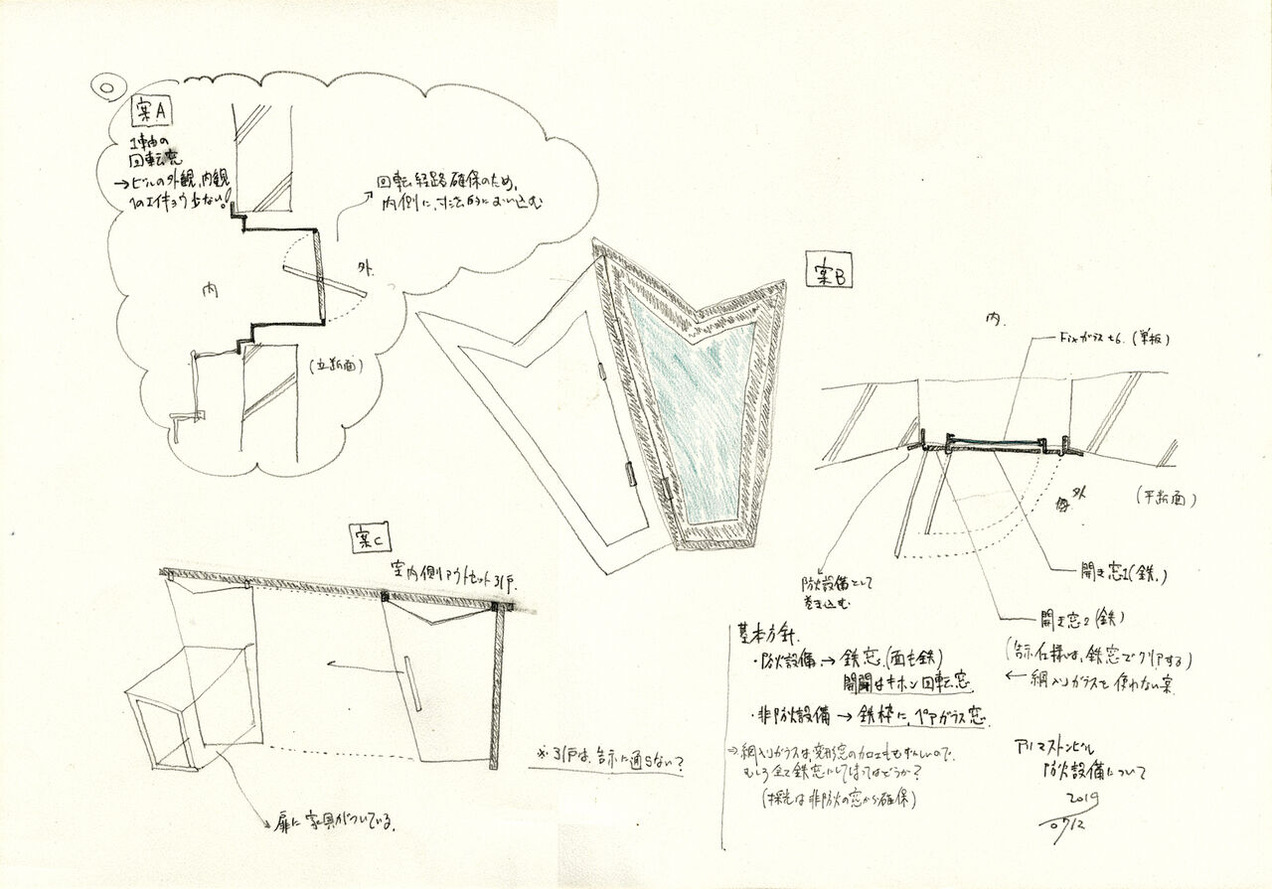 案A
1軸の
回転窓
→ビルの外観、内観
へのエイキョウ少ない!
回転経路確保のため、
内側に、寸法的にはい込む
内
外
(立断面)
案B
内.
Fixガラスt6.(単板)
外
(平断面)
防火設備として
巻き込む
開き窓1(鉄.)
開き窓2(鉄)
(告示仕様は、鉄窓でクリアする)
←網入りガラスを使わない案.
案C
室内側アウトセット引戸.
扉に家具がついている.
※引戸は、告示に通らない?
基本方針.
・防火設備→鉄窓.(面も鉄)
開閉はキホン回転窓.
・非防火設備→鉄枠に、ペアガラス窓.
→網入りガラスは、変形窓の加工もむずかしいので.
むしろ全て鉄窓にしてしまってはどうか?
(採光は非防火の窓から確保)
アリマストンビル
防火設備について
2019
07/12